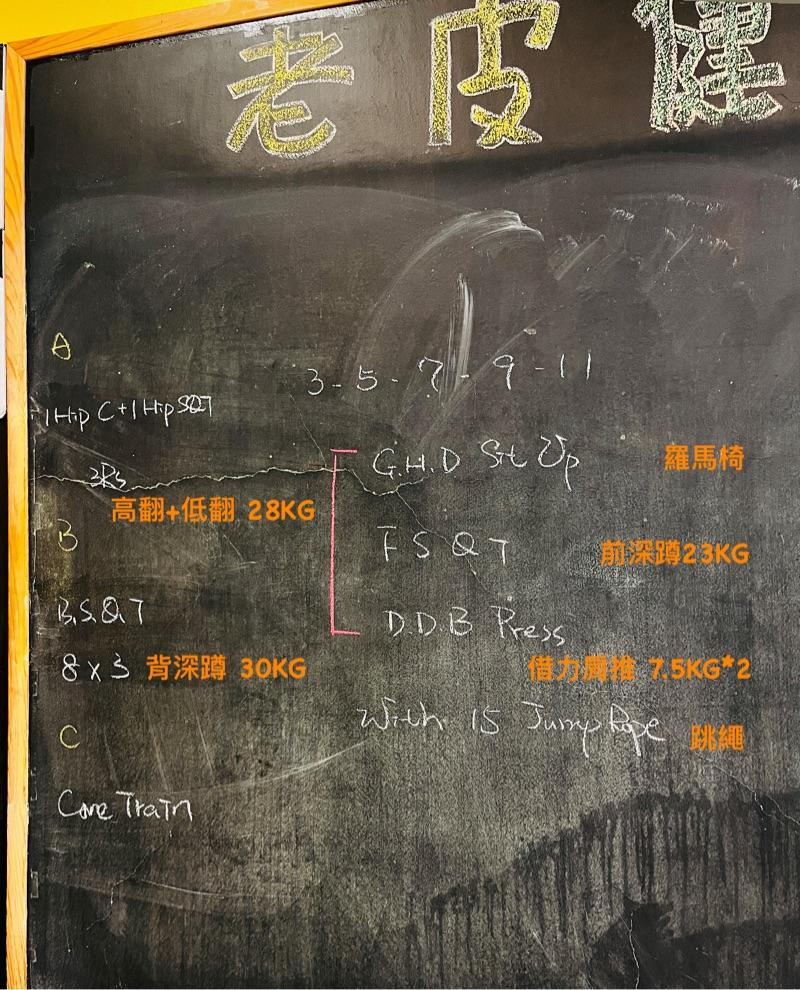 老皮健
A
1 Hip C + 1 Hip SQT
3Rs
高翻+低翻 28KG
B
B.S.Q.T
8 x 3 背深蹲 30KG
C
Core Train
3 - 5 - 7 - 9 - 11
G.H.D Sit Up 羅馬椅
F S Q T 前深蹲23KG
D.D.B Press
借力肩推 7.5KG*2
With 15 Jump Rope 跳繩